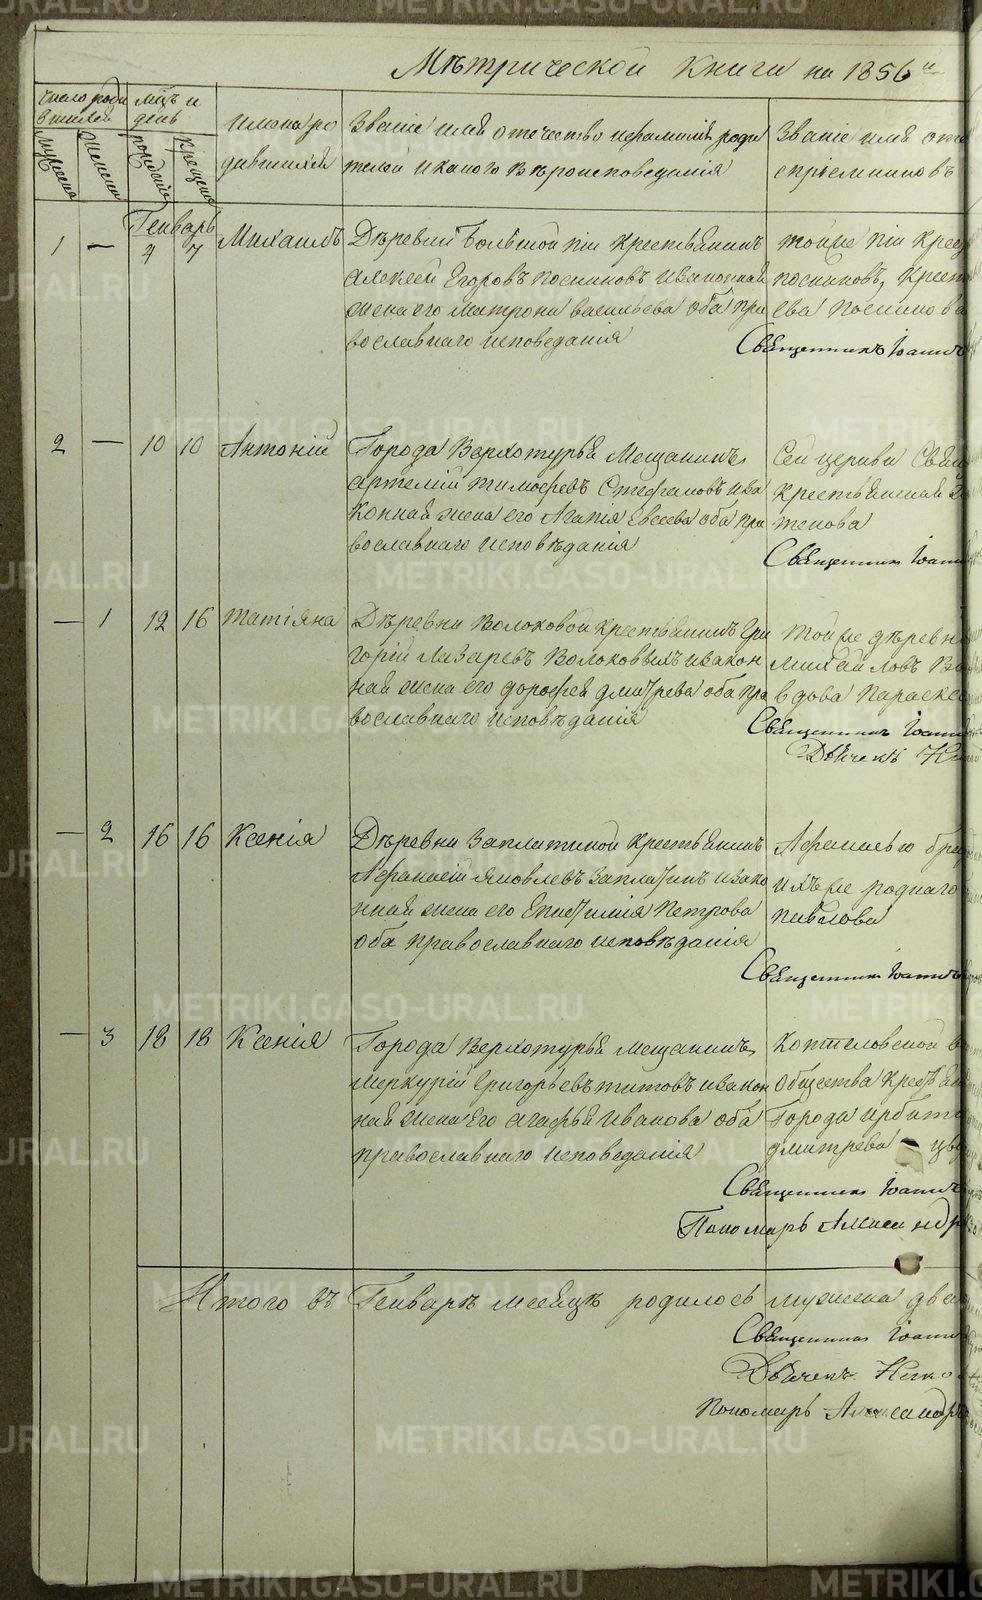 Мѣтрической Книги на 1856й
Число роди
вшихся
Мужеска
Женска
Мцъ и
день
рожденія
крещенія
Имена ро
дившихся
Званіе имя отечество и фамилія роди
телей и какого вѣроисповеданія
Званіе имя оте
спріемниковъ
Генварь
1 — 4 7 Михаилъ
Дѣревни Большой Піи Крестьянинъ
Алексей Егоровъ Посниковъ и законная
жена его Матрона Васильева оба пра
вославнаго исповеданія
Тойже Піи Крес
Посниковъ, Крест
ева Посникова
Священникъ Іоанн
2 — 10 10 Антоній
Города Верхотурья Мещанинъ
Артемій Тимофеевъ Стефановъ и зако
конная жена его Агапія Евсеева оба пра
вославнаго исповѣданія
Сей церкви Свящ
крестьянская
Священникъ Іоанн
— 1 12 16 Татіяна
Дѣревни Волоковой Крестьянинъ Гри
горій Лазаревъ Волоковыхъ и закон
ная жена его Дорофея Дмитрева оба пра
вославнаго исповѣданія
Тойже дѣревн
Михайловъ Во
вдова Параске
Священникъ Іоанн
Дьячекъ Ник
— 2 16 16 Ксенія
Дѣревни Заплатиной Крестьянинъ
Афанасій Яковлевъ Заплатинъ и зако
нная жена его Епистимія Петрова
оба православнаго исповѣданія
ихъ же роднаго
Павлова
Священникъ Іоаннъ
— 3 18 18 Ксенія
Города Верхотурья мещанинъ
Меркурій Григорьевъ Титовъ и закон
ная жена его Агафья Иванова оба
православнаго исповеданія
Коптеловской в
Общества Крестьян
Города Ирбита
Дмитрева
Священникъ Іоаннъ
Пономарь Александр
Итого въ Генварѣ месяцѣ родилось мужеска два
Священникъ Іоанн
Дьячекъ Нико
Пономарь Александр
METRIKI.GASO-URAL.RU